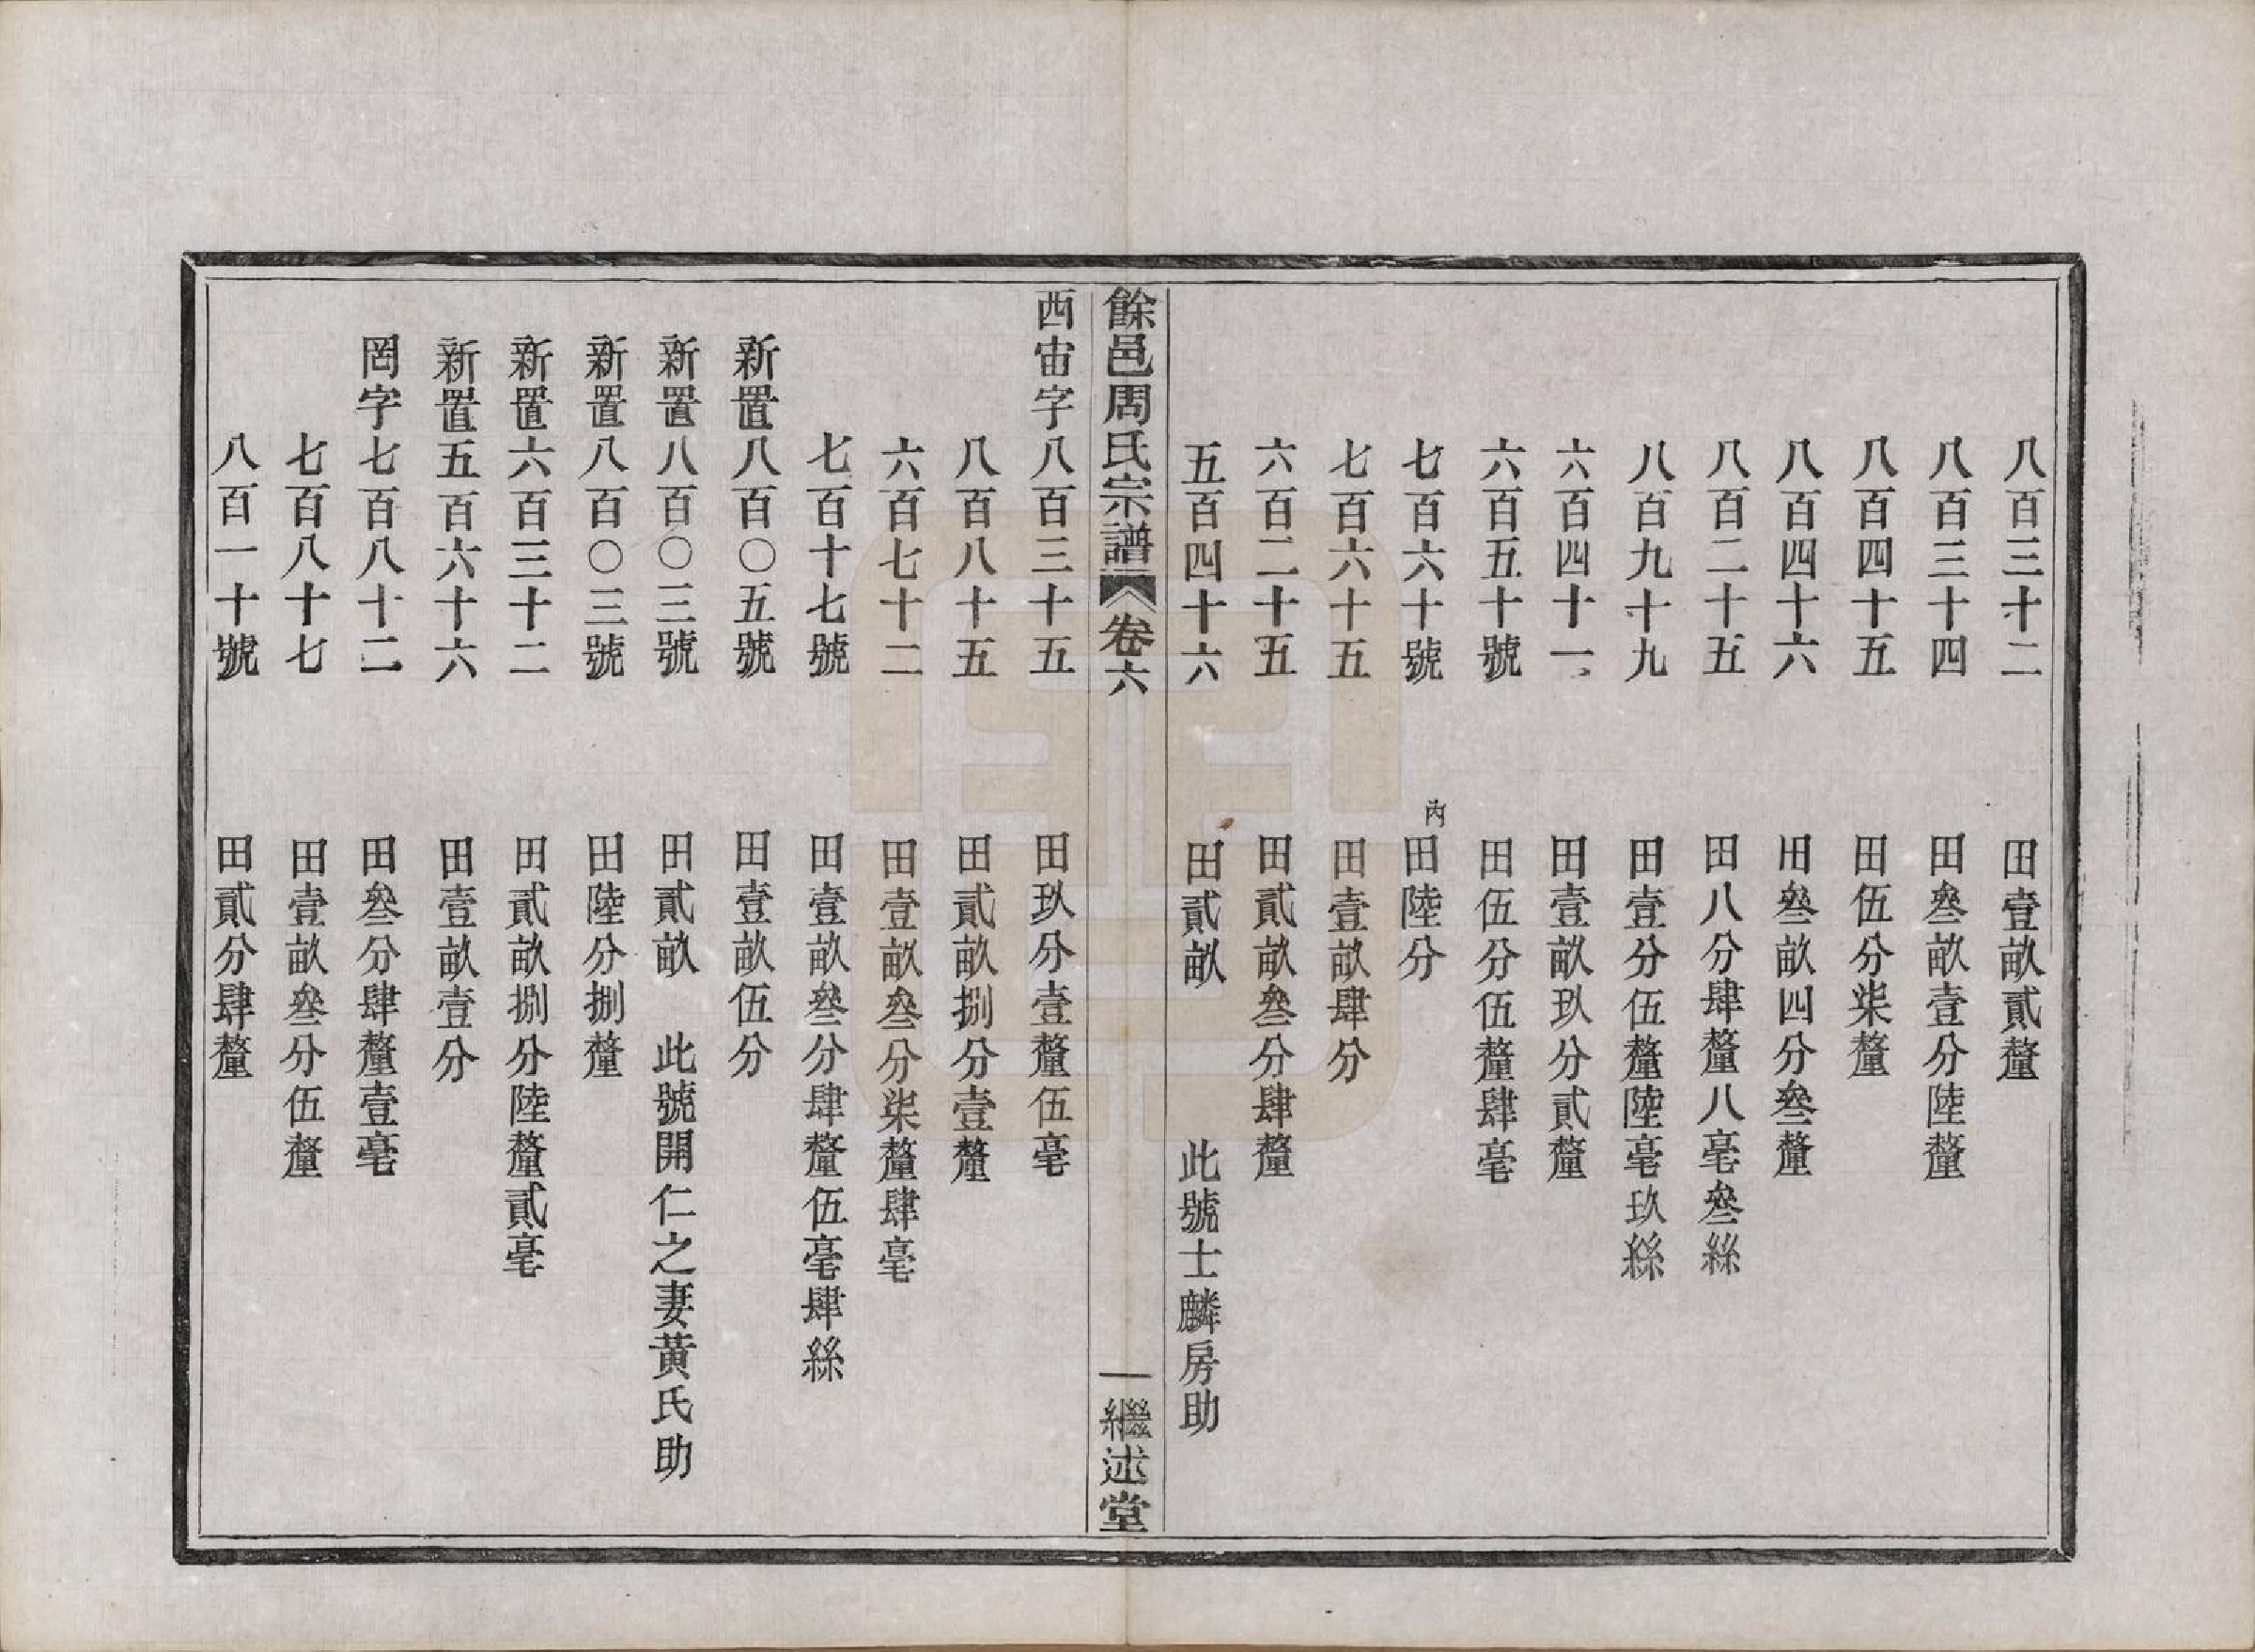 八百三十二 田壹畝貳釐
八百三十四 田叄畝壹分陸釐
八百四十五 田伍分柒釐
八百四十六 田叄畝四分叄釐
八百二十五 田八分肆釐八毫叄絲
八百九十九 田壹分伍釐陸毫玖絲
六百四十一 田壹畝玖分貳釐
六百五十號 田伍分伍釐肆毫
七百六十號 內田陸分
七百六十五 田壹畝肆分
六百二十五 田貳畝叄分肆釐
五百四十六 田貳畝 此號士麟房助
餘邑周氏宗譜 卷六 一 繼述堂
西宙字八百三十五 田玖分壹釐伍毫
八百八十五 田貳畝捌分壹釐
六百七十二 田壹畝叄分柒釐肆毫
七百十七號 田壹畝叄分肆釐伍毫肆絲
新置八百〇五號 田壹畝伍分
新置八百〇三號 田貳畝 此號開仁之妻黃氏助
新置八百〇三號 田陸分捌釐
新置六百三十二 田貳畝捌分陸釐貳毫
新置五百六十六 田壹畝壹分
罔字七百八十二 田叄分肆釐壹毫
七百八十七 田壹畝叄分伍釐
八百一十號 田貳分肆釐